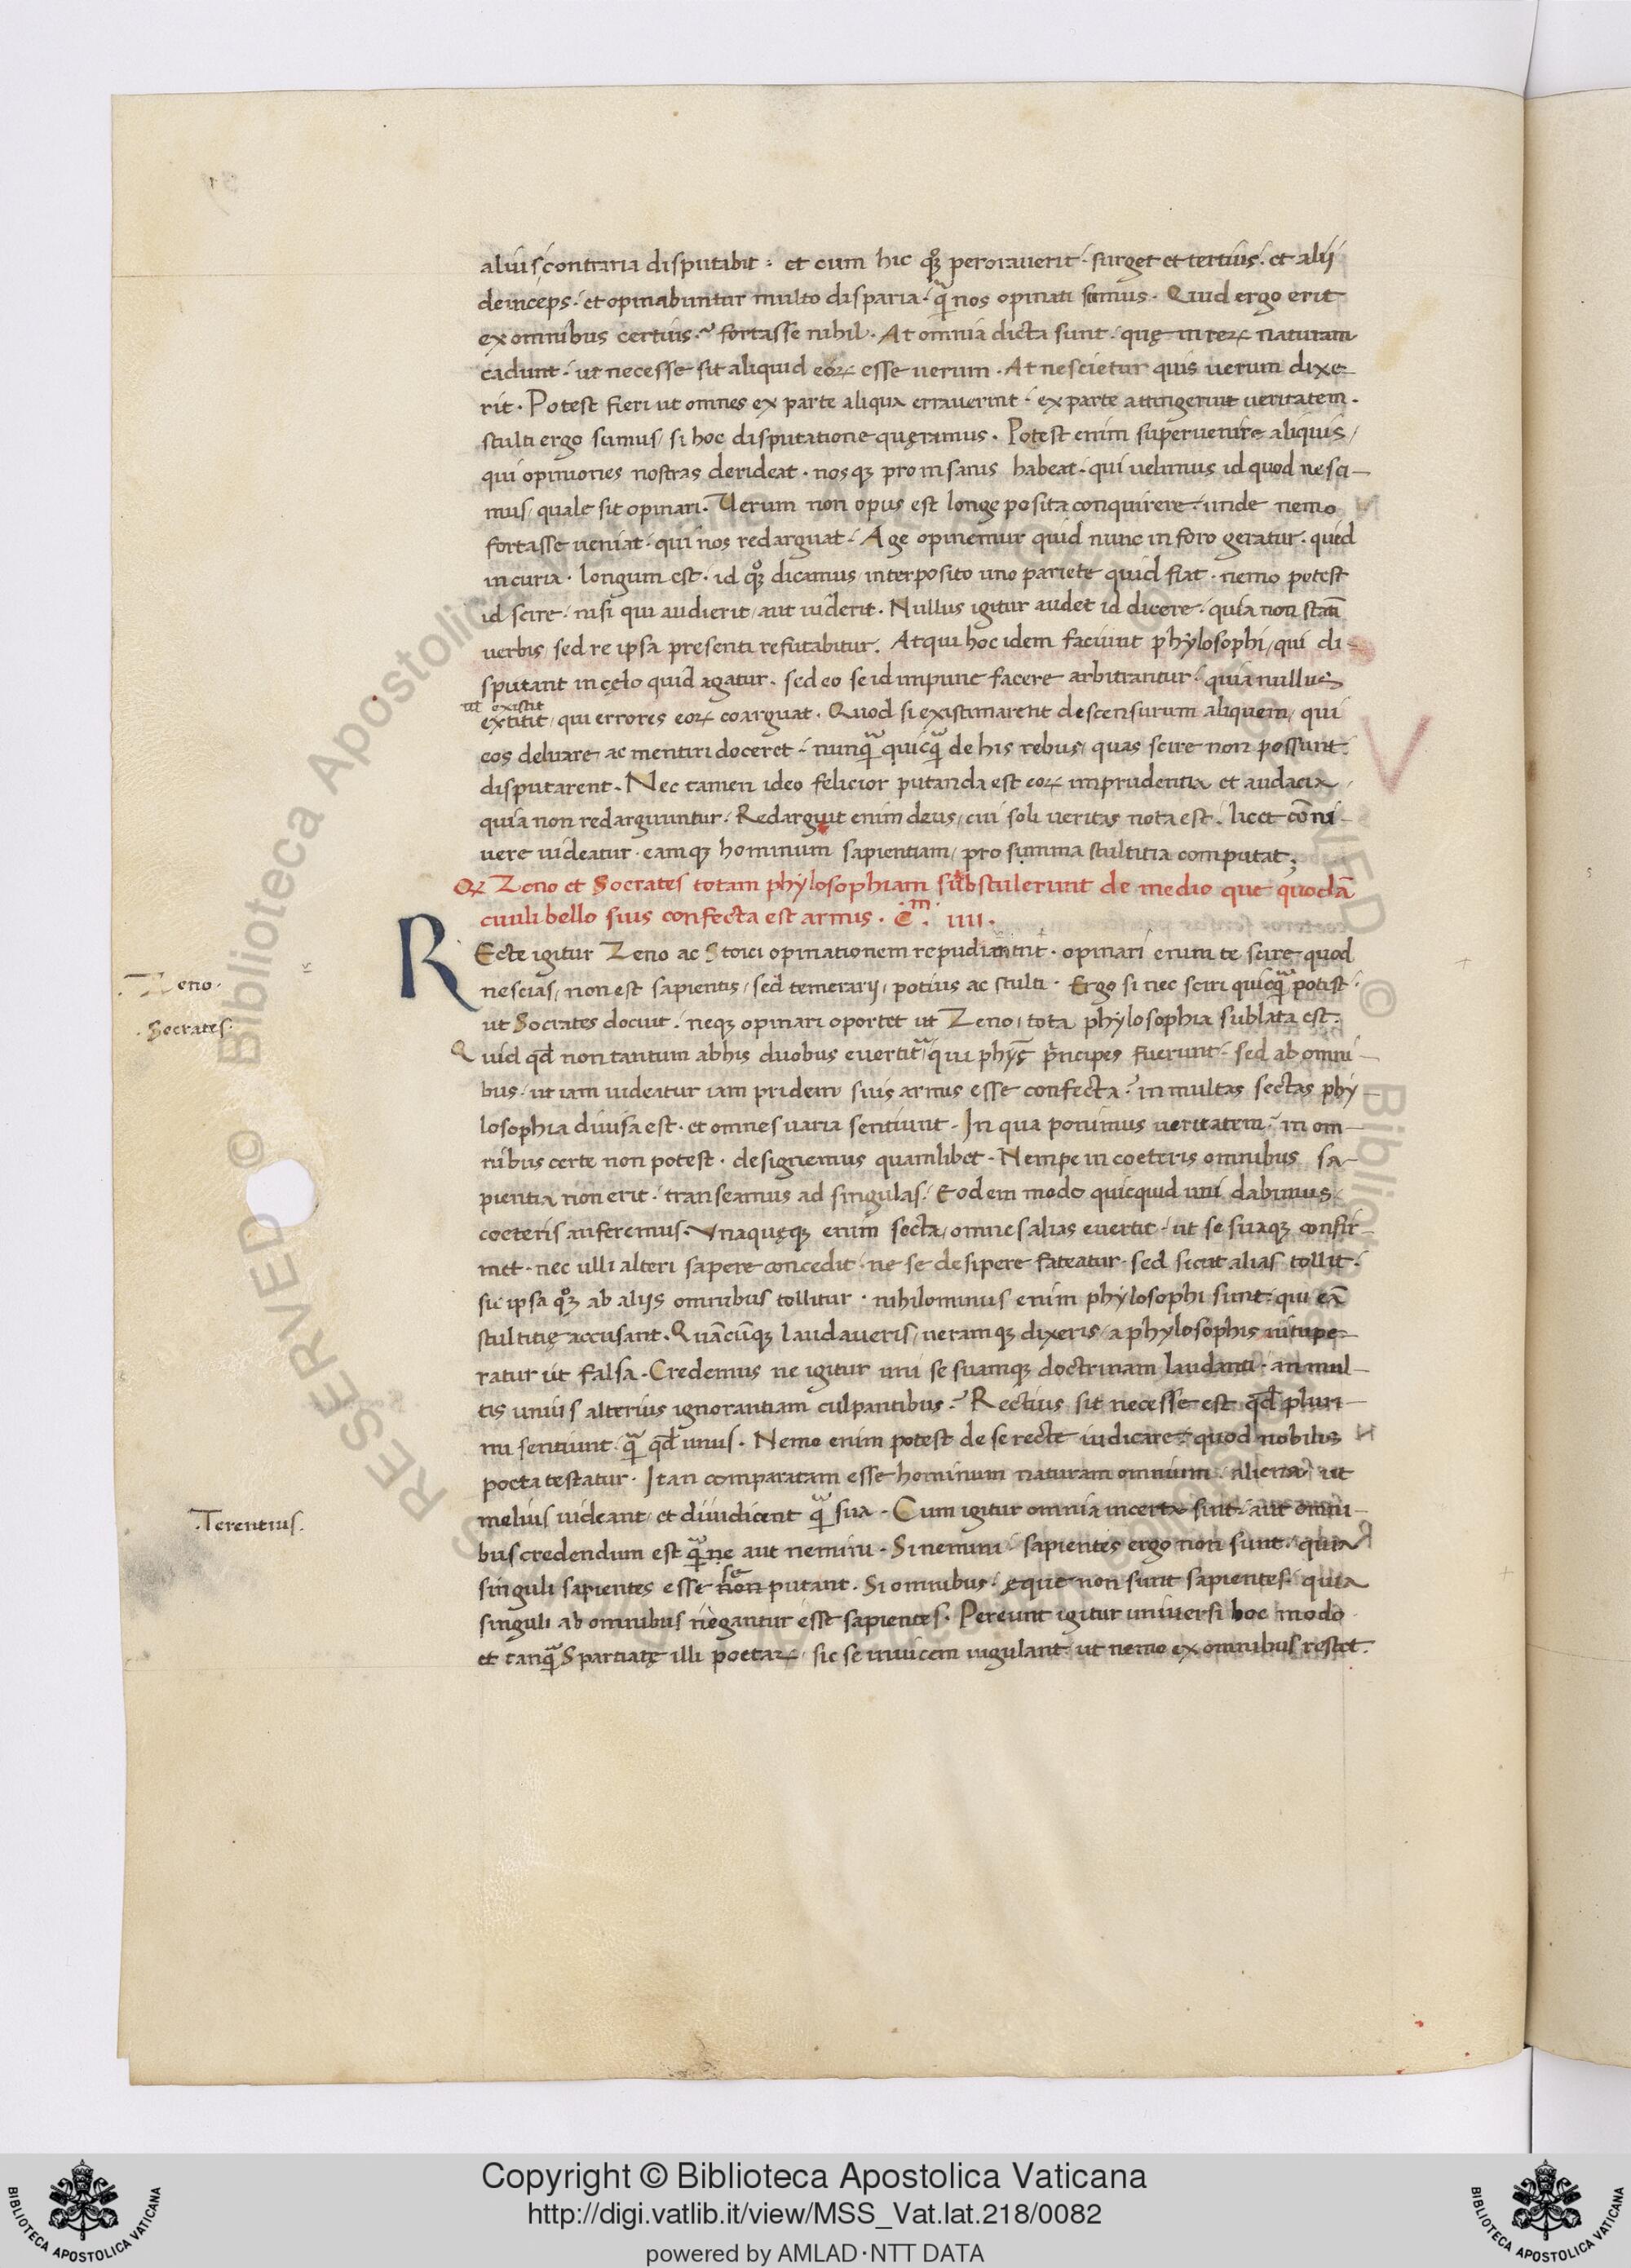 alius contraria disputabit · et cum hic quoqꝫ perorauerit · surget et tertius · et alij
deinceps · et opinabuntur multo disparia · qᷓ nos opinati sumus · Quid ergo erit
ex omnibus certius ? fortasse nihil · At omnia dicta sunt · quę in rerꝝ naturam
cadunt · ut necesse sit aliquid eoꝝ esse uerum · At nescietur quis uerum dixe
rit · Potest fieri ut omnes ex parte aliqua errauerint · ex parte attingerint ueritatem ·
stulti ergo sumus / si hoc disputatione quęramus · Potest enim superuenire aliquis /
qui opiniones nostras derideat · nosqꝫ pro insanis habeat · qui uelimus id quod nesci-
mus / quale sit opinari · Uerum non opus est longe posita conquirere · unde nemo
fortasse ueniat · qui nos redarguat · Age opinemur quid nunc in foro geratur · quid
in curia · longum est · id qͦꝫ dicamus interposito uno pariete quid fiat · nemo potest
id scire · nisi qui audierit / aut uiderit · Nullus igitur audet id dicere · quia non statī
uerbis / sed re ipsa presenti refutabitur · Atqui hoc idem faciunt phylosophi / qui di-
sputant in cęlo quid agatur · sed eo se id impune facere arbitrantur · quia nullus
ut existit
extitit / qui errores eoꝝ coarguat · Quod si existimarent descensurum aliquem / qui
eos delirare ac mentiri doceret · nunqᷓ quicqᷓ de his rebus / quas scire non possunt
disputarent · Nec tamen ideo felicior putanda est eoꝝ imprudentia et audacia /
quia non redarguuntur · Redarguit enim deus / cui soli ueritas nota est · licet cōni-
uere uideatur · eamqꝫ hominum sapientiam / pro summa stultitia computat ;
Qꝝ Zeno et Socrates totam phylosophiam substulerunt de medio que quodā
ciuili bello suis confecta est armis · C̄.m IIII ·
REcte igitur Zeno ac Stoici opinationem repudiarunt · opinari enim te scire quod
nescias / non est sapientis / sed temerarij / potius ac stulti · Ergo si nec sciri quicqᷓ potest ·
ut Socrates docuit · neqꝫ opinari oportet ut Zeno / tota phylosophia sublata est ·
Quid qd̄ non tantum ab his duobus euertitᷓ / qui phyę̄ prīncipes fuerunt · sed ab omni-
bus · ut iam uideatur iam pridem suis armis esse confecta ? in multas sectas phy-
losophia diuisa est · et omnes uaria sentiunt · In qua ponimus ueritatem ? in om-
nibus certe non potest · designemus quamlibet · Nempe in coeteris omnibus sa-
pientia non erit · transeamus ad singulas · Eodem modo quicquid uni dabimus
coeteris auferemus · Vnaquęqꝫ enim secta / omnes alias euertit · ut se suaqꝫ confir-
met · nec ulli alteri sapere concedit · ne se desipere fateatur · sed sicut alias tollit ·
sic ipsa qͦꝫ ab alijs omnibus tollitur · nihilominus enim phylosophi sunt · qui eā
stultitię accusant · Quācūqꝫ laudaueris / ueramqꝫ dixeris / a phylosophis uitupe-
ratur ut falsa · Credemus ne igitur uni se suamqꝫ doctrinam laudanti · an mul-
tis unius alterius ignorantiam culpantibus ? Rectius sit necesse est qd̄ pluri-
mi sentiunt · qᷓ qd̄ unus · Nemo enim potest de se recte iudicare · quod nobilis
poeta testatur · Itan comparatam esse hominum naturam omnium · aliena ut
melius uideant / et diiudicent qᷓ sua · Cum igitur omnia incerta sint · aut omni-
bus credendum est qᷓ ne aut nemini · Si nemini · sapientes ergo non sunt · quia
se
singuli sapientes esse non putant · Si omnibus · ęque non sunt sapientes · quia
singuli ab omnibus negantur esse sapientes · Pereunt igitur uniuersi hoc modo
et tanqᷓ Spartiatę illi poetaꝝ / sic se inuicem iugulant · ut nemo ex omnibus restet ·
Zeno ·
· Socrates ·
· Terentius ·
RESERVED © Biblioteca Apostolica Vaticana
Copyright © Biblioteca Apostolica Vaticana
http://digi.vatlib.it/view/MSS_Vat.lat.218/0082
powered by AMLAD·NTT DATA
BIBLIOTECA APOSTOLICA VATICANA
BIBLIOTECA APOSTOLICA VATICANA